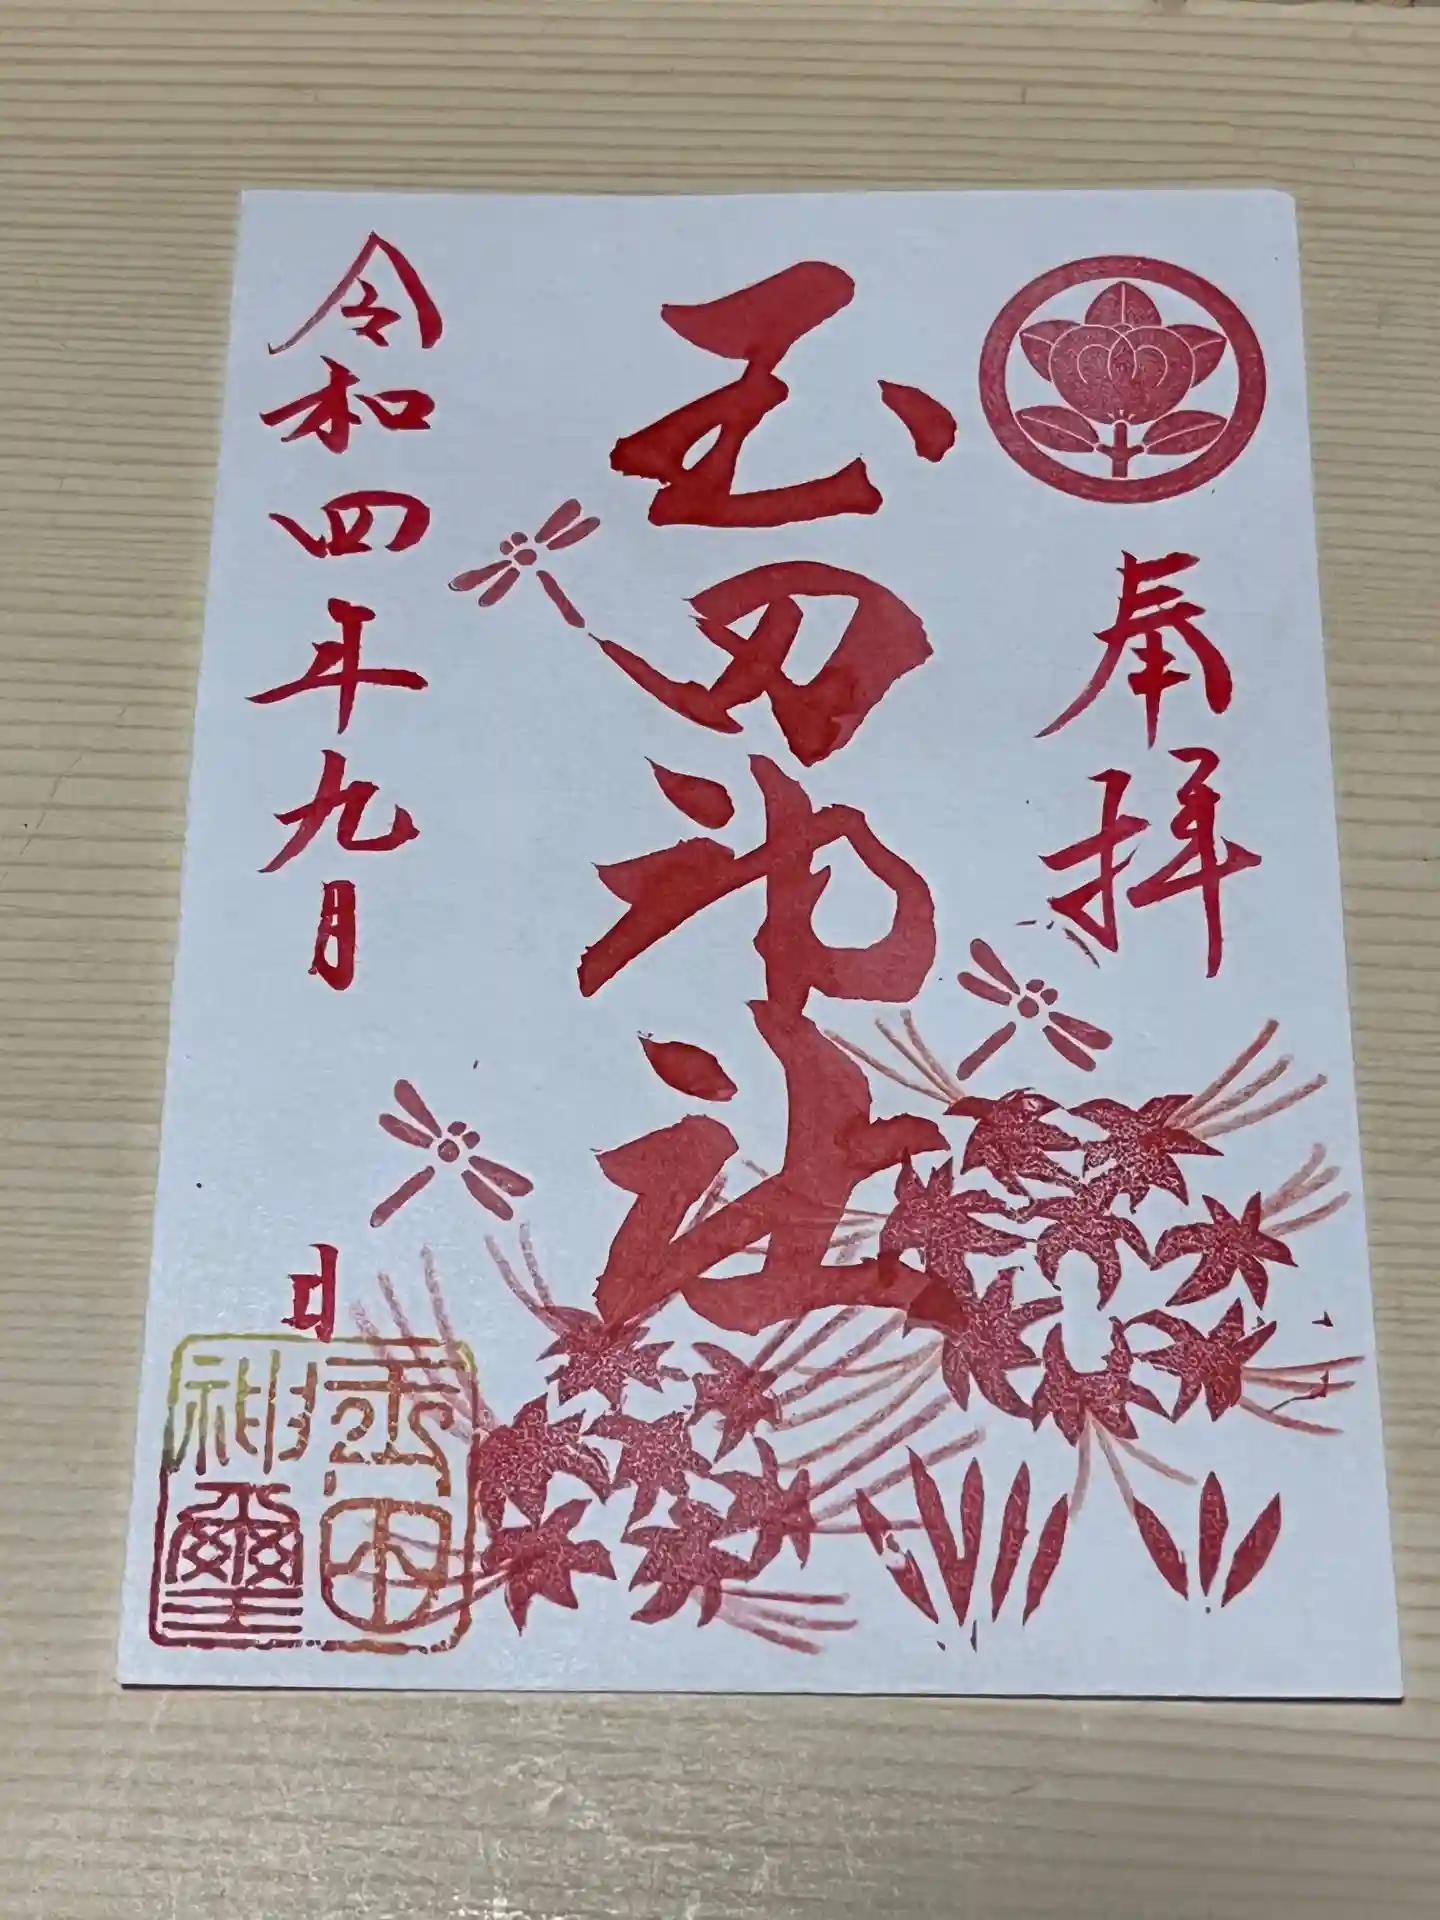 奉拝
玉田神社
令和四年九月 日
玉田
神璽